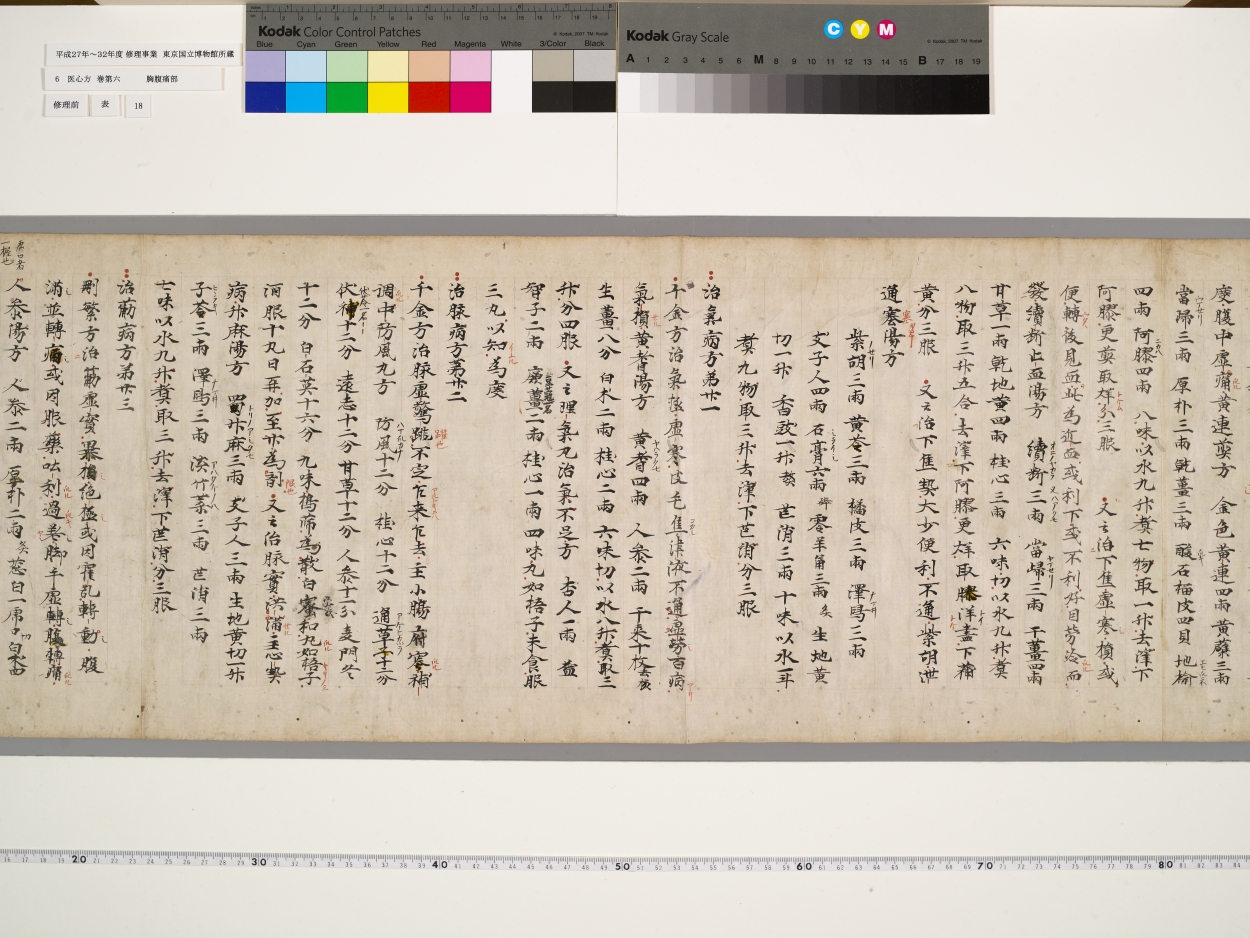 平成27年～32年度 修理事業 東京国立博物館所蔵
6 医心方 巻第六 胸腹痛部
修理前 表 18
Kodak Color Control Patches
Blue Cyan Green Yellow Red Magenta White 3/Color Black
© Kodak, 2007 TM: Kodak
Kodak Gray Scale
C Y M
© Kodak, 2007 TM: Kodak
A 1 2 3 4 5 6 M 8 9 10 11 12 13 14 15 B 17 18 19
腹中虚痛黄連煎方 金色黄連四両 黄蘗三両
當歸三両 厚朴三両 乾薑三両 酸石榴皮四具 地楡
四両 阿膠四両 八味以水九升煮七物取一升去滓下
阿膠更煎取 三服 又云治下焦虚寒損或
便轉後見血此為近血或利下或不利好目労冷而
發續断止血湯方 續断三両 當歸三両 干薑四両
甘草一両 乾地黄四両 桂心三両 六味切以水九升煮
八物取三升五合去滓下阿膠更烊取膠洋盡下蒲
黄分三服 又云治下焦熱大少便利不通柴胡泄
通塞湯方
柴胡三両 黄芩三両 橘皮三両 澤瀉三両
支子人四両 石膏六両碎 零羊角三両炙 生地黄
切一升 香豉一升 芒消三両 十味以水一斗
煮九物取三升去滓下芒消分三服
治氣病方第廿一
千金方治氣極虚寒皮毛焦津液不通虚労百病
氣損黄耆湯方 黄耆四両 人参二両 干棗十枚去核
生薑八分 白朮二両 桂心二両 六味切以水八升煮取三
升分四服 又云理氣丸治氣不足方 杏人一両 益
智子二両 廣薑二両 桂心一両 四味丸如梧子未食服
三丸以知為度
治脉病方第廿二
千金方治脉虚驚跳不定乍来乍去主小腸府寒補
調中防風丸方 防風十二分 桂心十二分 通草十二分
伏神十二分 遠志十二分 甘草十二分 人参十二分 麦門冬
十二分 白石英十六分 九味擣篩為散白蜜和丸如梧子
酒服十丸日再加至廿為剤 又云治脉實洪滿主心熱
病升麻湯方 蜀升麻三両 支子人三両 生地黄切一升
子芩三両 澤瀉三両 淡竹葉三両 芒消三両
七味以水九升煮取三升去滓下芒消分三服
治筋病方第廿三
刪繁方治筋虚實暴損絶極或因霍乱轉動 腹
滿並轉痛或因服藥吐利過巻脚手虚轉腹轉痛
人参湯方 人参二両 厚朴二両炙 葱白一虎口切 白朮四
20 30 40 50 60 70 80